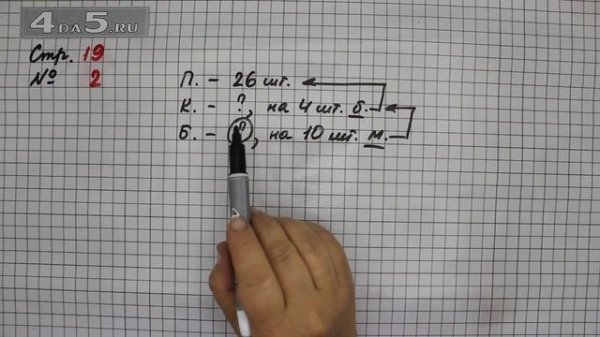 4DA5.RU
Стр. 19
№ 2
П. - 26 шт.
К. - ?, на 4 шт. б.
Б. - ?, на 10 шт. м.